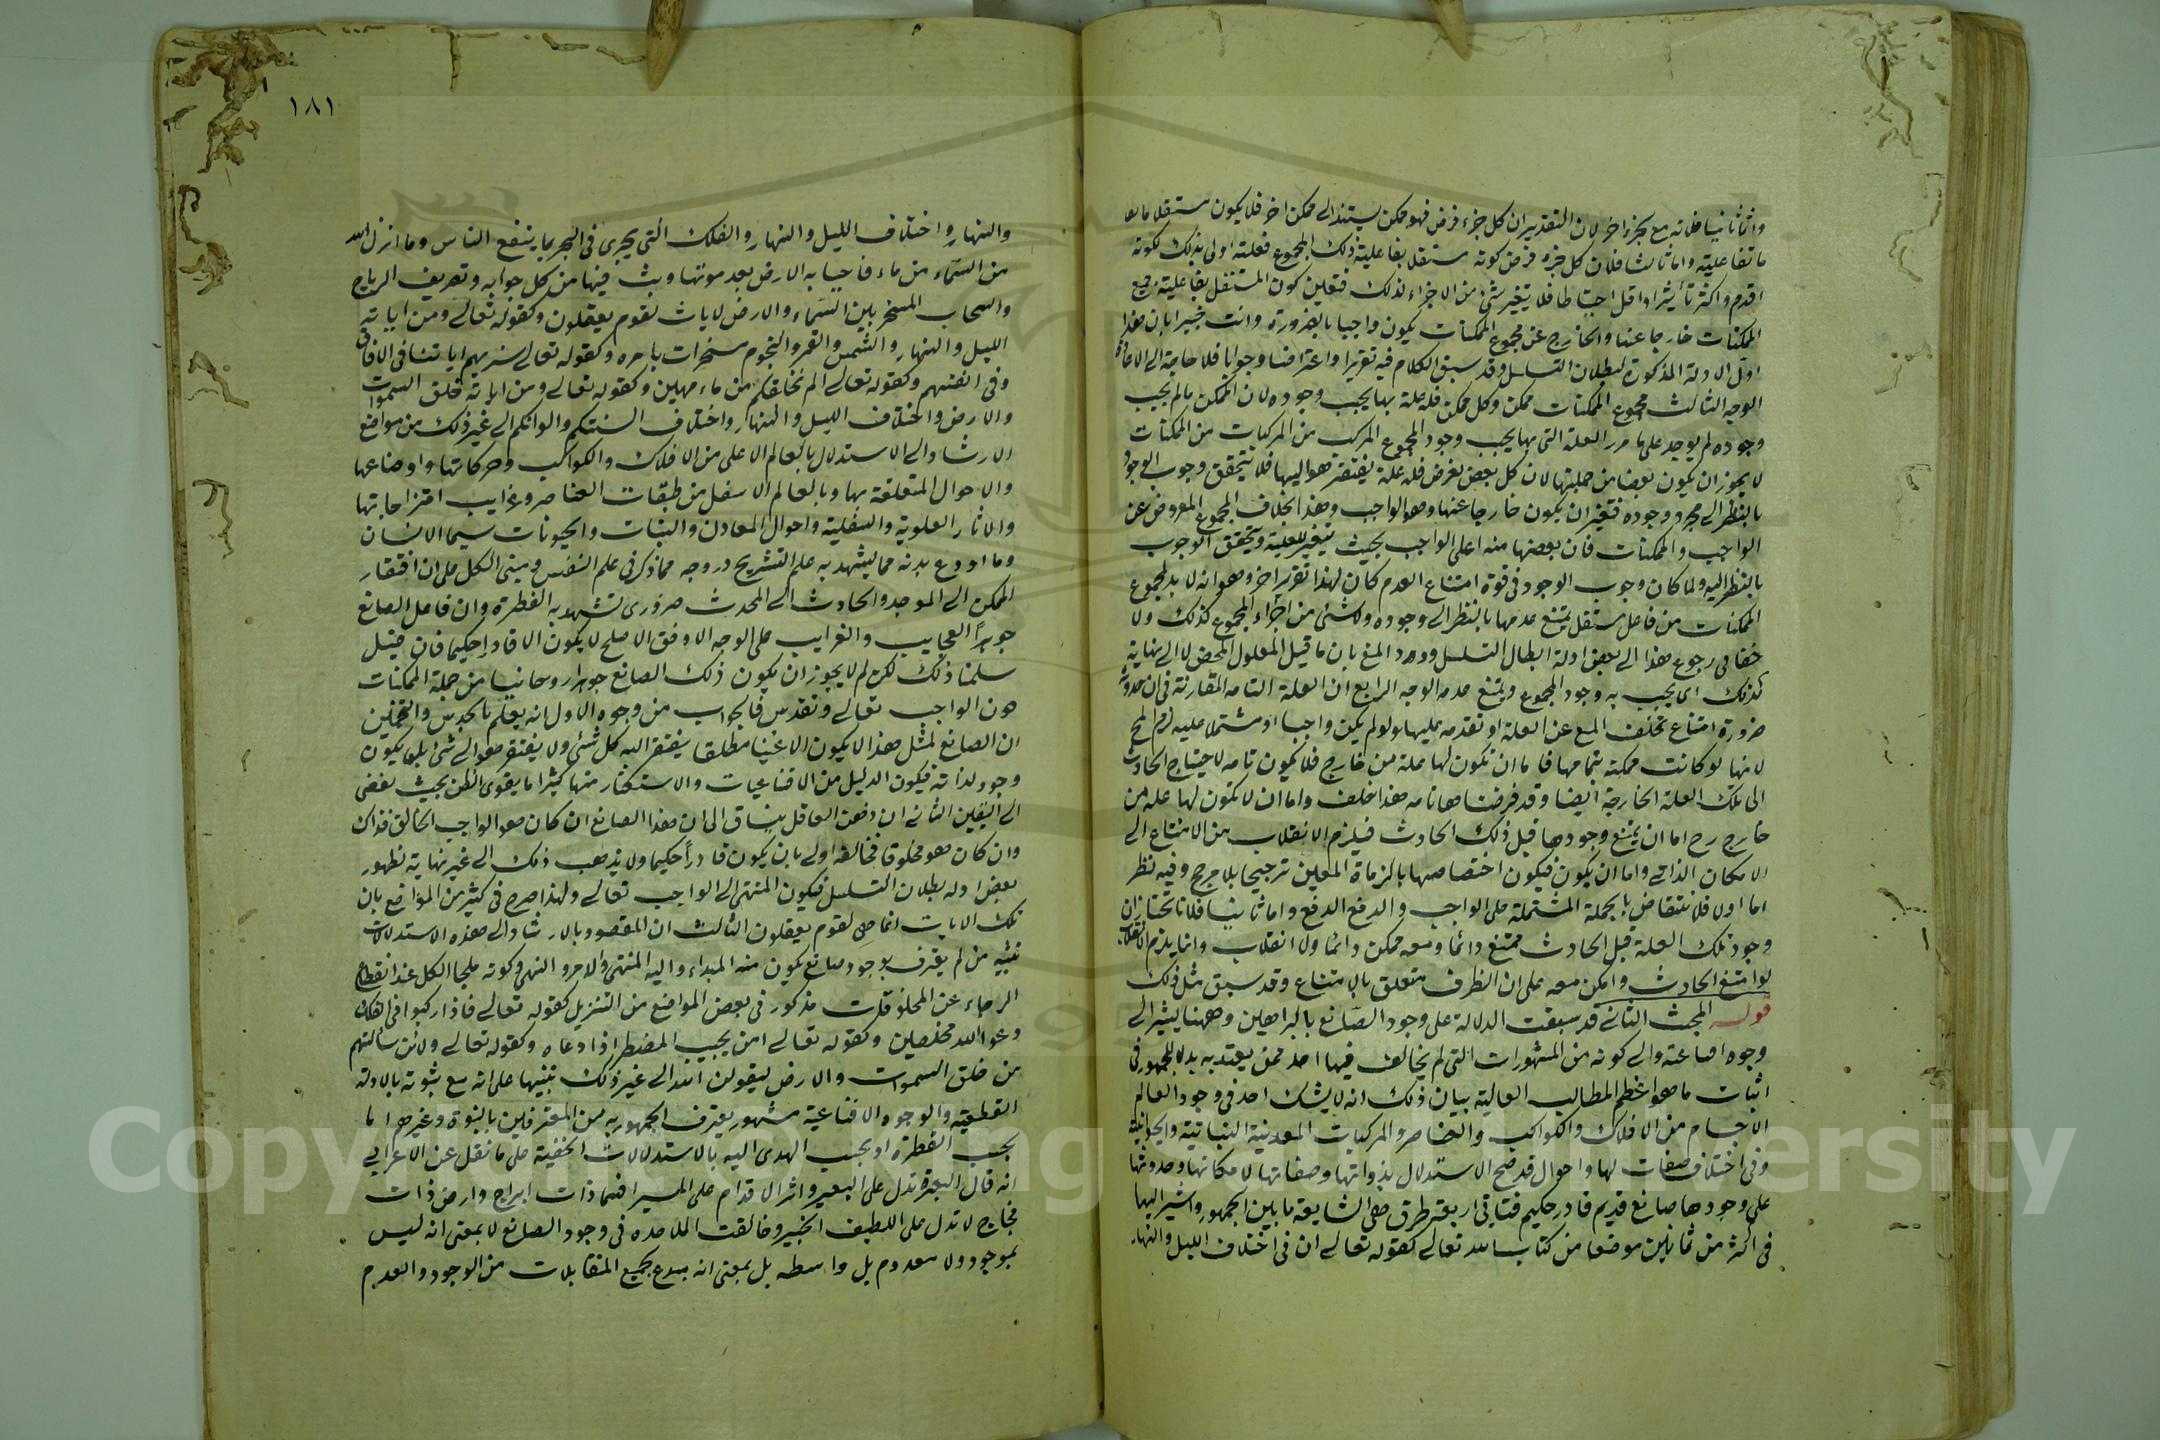 واما ثانيا فلانه مع بجزء اخر لان التقدير ان كل جزء فرض فهو ممكن يستند الى ممكن اخر فلا يكون مستقلا
ما بفاعلية واما ثالثا فلان كل جزء فرض كونه مستقلا بفاعلية ذلك المجموع فعلته اولى بذلك لكونه
اقدم واكثر تأثيرا واقل احتياطا فلا يتغير شئ من الاجزاء لذلك فتعين كون المستقل بفاعلية جميع
الممكنات خارجا عنها والخارج عن مجموع الممكنات يكون واجبا بالضرورة وانت خبير بان هذا
اول الادلة المذكورة لبطلان التسلسل وقد سبق الكلام فيه تقريرا واعتراضا وجوابا فلا حاجة الى الاعادة
الوجه الثالث مجموع الممكنات ممكن وكل ممكن فله علة بها يجب وجوده لان الممكن ما لم يجب
وجوده لم يوجد على ما مر العلة التي بها يجب وجود المجموع المركب من المركبات من الممكنات
لا يجوز ان يكون بعضا من جملتها لان كل بعض يفرض فله علة يفتقر هو اليها فلا يتحقق وجوب الوجود
بالنظر الى مجرد وجوده فتعين ان يكون خارجا عنها وهو الواجب وهذا بخلاف المجموع المفروض عن
الواجب والممكنات فان بعضها منه اعلى الواجب بحيث يتعين للعلية ويحقق الوجوب
بالنظر اليه ولما كان وجوب الوجود في قوة امتناع العدم كان لهذا تقرير اخر وهو انه لا بد لمجموع
الممكنات من فاعل مستقل يمتنع عدمها بالنظر الى وجوده ولا شئ من اجزاء المجموع كذلك ولا
خفا في رجوع هذا الى بعض ادلة ابطال التسلسل وورد المنع بان ما قبل المعلول المحض لا الى نهاية
كذلك اى يجب به وجود المجموع ويمتنع عدمه الوجه الرابع ان العلة التامة المقارنة في ان حدوثه
ضرورة امتناع تخلف المع عن العلة او تقدمه عليها ولو لم يكن واجبا او مشتملا عليه لزم المح
لانها لو كانت ممكنة بتمامها فاما ان تكون لها علة من خارج فلا تكون تامة لاحتياج الحادث
الى تلك العلة الخارجة ايضا وقد فرضناها تامه هذا خلف واما ان لا تكون لها علة من
خارج رح اما ان يمتنع وجودها قبل ذلك الحادث فيلزم الانقلاب من الامتناع الى
الامكان الذاتي واما ان يكون فيكون اختصاصها بالزمان المعين ترجيحا بلا مرجح وفيه نظر
اما اولا فلانتقاض بالجملة المشتملة على الواجب والدفع الدفع واما ثانيا فلانا نختار ان
وجود تلك العلة قبل الحادث ممتنع دائما ومعه ممكن دائما ولا انقلاب وانما يلزم الانقلاب
لو امتنع الحادث وامكن معه على ان الظرف متعلق بالامتناع وقد سبق مثل ذلك
قوله المبحث الثاني قد سبقت الدلالة على وجود الصانع بالبراهين وههنا يشير الى
وجوه اقناعية والى كونه من المشهورات التي لم يخالف فيها احد ممن يعتد به بدلا للجمهور في
اثبات ما هو اعظم المطالب العالية بيان ذلك انه لا يشك احد في وجود العالم
الاجسام من الافلاك والكواكب والعناصر والمركبات المعدنية النباتية والحيوانية
وفي اختلاف صفات لها واحوال قد صح الاستدلال بذواتها وصفاتها لامكانها وحدوثها
على وجودها صانع قديم قادر حكيم فتاتي اربعة طرق هي الشايعة ما بين الجمهور واشير اليها
في اكثر من ثمانين موضعا من كتاب الله تعالى كقوله تعالى ان في اختلاف الليل والنهار
١٨١
والنهار واختلاف الليل والنهار والفلك التي يجرى في البحر بما ينفع الناس وما انزل الله
من السماء من ماء فاحيا به الارض بعد موتها وبث فيها من كل دوابة وتصريف الرياح
والسحاب المسخر بين السماء والارض لايات لقوم يعقلون وكقوله تعالى ومن اياته
الليل والنهار والشمس والقمر والنجوم مسخرات بامره وكقوله تعالى سنريهم اياتنا في الافاق
وفي انفسهم وكقوله تعالى الم نخلقكم من ماء مهين وكقوله تعالى ومن اياته خلق السموات
والارض واختلاف الليل والنهار واختلاف السنتكم والوانكم الى غير ذلك من مواضع
الارشاد الى الاستدلال بالعالم الاعلى من الافلاك والكواكب وحركاتها واوضاعها
والاحوال المتعلقة بها وبالعالم الاسفل من طبقات العناصر وغرايب امتزاجاتها
والاثار العلوية والسفلية واحوال المعادن والنبات والحيونات سيما الانسان
وما اودع بدنه مما يشهد به علم التشريح دروجه مما ذكر في علم النفس ومبنى الكل على ان افتقار
الممكن الى الموجد والحادث الى المحدث ضرورى تشهد به الفطرة وان فاعل الصانع
العجايب والغرايب على الوجه الاوفق الاصلح لا يكون الا قادرا حكيما فان قيل
سلمنا ذلك لكن لم لا يجوز ان يكون ذلك الصانع جوهرا روحانيا من جملة الممكنات
دون الواجب تعالى وتقدس فالجواب من وجوه الاول انه يعلم بالحدس والتخمين
ان الصانع لمثل هذا لا يكون الا غنيا مطلقا يفتقر اليه كل شئ ولا يفتقر هو الى شئ بل يكون
وجود لذاته فيكون الدليل من الاقناعيات والاستكثار منها كثيرا ما يقوى الظن بحيث يفضى
الى اليقين الثاني ان ذهن العاقل ينساق الى ان هذا الصانع ان كان هو الواجب الخالق فذاك
وان كان هو مخلوقا فخالقه اولى بان يكون قادرا حكيما ولا يذهب ذلك الى غير نهاية لظهور
بعض ادلة بطلان التسلسل فيكون المنتهى الى الواجب تعالى ولهذا صرح في كثير من المواضع بان
تلك الايات انما هي لقوم يعقلون الثالث ان المقصود بالارشاد الى هذه الاستدلالات
تنبيه من لم يعترف بوجود صانع يكون منه المبداء واليه المنتهى والامر والنهى وكونه ملجا الكل عند انقطاع
الرجاء عن المخلوقات مذكور في بعض المواضع من التنزيل كقوله تعالى فاذا ركبوا في الفلك
دعوا الله مخلصين وكقوله تعالى امن يجيب المضطر اذا دعاه وكقوله تعالى ولئن سألتهم
من خلق السموات والارض ليقولن الله الى غير ذلك تنبيها على انه مع ثبوته بالادلة
القطعية والوجوه الاقناعية مشهور يعترف الجمهور به من المعترفين بالنبوة وغيرهم اما
بحسب الفطرة او بحسب الهدى اليه بالاستدلالات الخفية على ما نقل عن الاعرابى
انه قال البعرة تدل على البعير واثر الاقدام على المسير افسماء ذات ابراج وارض ذات
فجاج لا تدل على اللطيف الخبير وخالفت الملاحده في وجود الصانع لا بمعنى انه ليس
بموجود ولا معدوم بل واسطه بل بمعنى انه مبدع بجميع المتقابلات من الوجود والعدم
Copyright © King Saud University